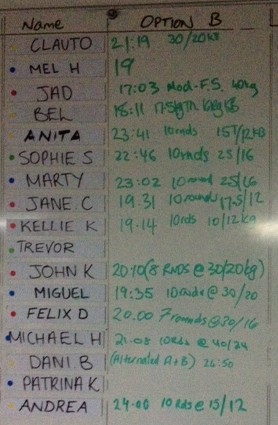 Name OPTION B
CLAUTO 21:19 30/20kg
MEL H 19
JAD 17:03 Mod-F.S. 40kg
BEL 18:11
ANITA 23:41 10rnds 15T/12KB
SOPHIE S 22:46 10rnds 25/16
MARTY 23:02 10round 25/16
JANE C 19.31 10rounds 17.5/12
KELLIE K 19.14 10rds 10/12kg
TREVOR
JOHN K 20:10 (8 RNDS @ 30/20kg)
MIGUEL 19:35 10 rnds @ 30/20
FELIX D 20.00 7 rounds @ 30/16
MICHAEL H 21.08 10 RDS @ 40/24
DANI. B (Alternated A+B) 26:50
PATRINA K
ANDREA 24.00 10 RDS @ 15/12